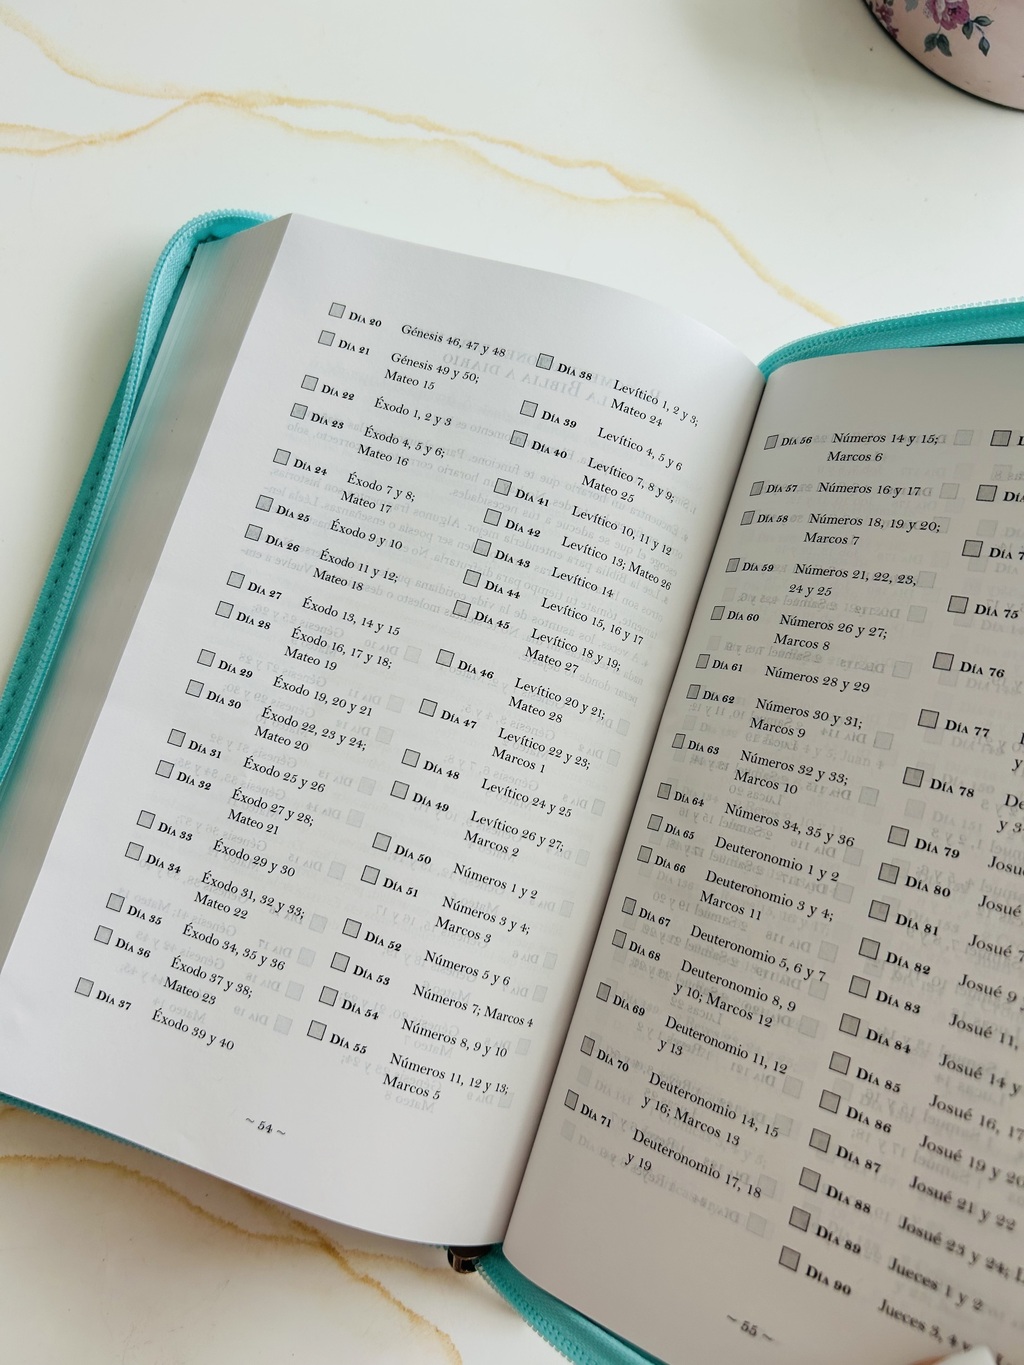 Día 20 Génesis 46, 47 y 48
Día 21 Génesis 49 y 50;
Mateo 15
Día 22 Éxodo 1, 2 y 3
Día 23 Éxodo 4, 5 y 6;
Mateo 16
Día 24 Éxodo 7 y 8;
Mateo 17
Día 25 Éxodo 9 y 10
Día 26 Éxodo 11 y 12;
Mateo 18
Día 27 Éxodo 13, 14 y 15
Día 28 Éxodo 16, 17 y 18;
Mateo 19
Día 29 Éxodo 19, 20 y 21
Día 30 Éxodo 22, 23 y 24;
Mateo 20
Día 31 Éxodo 25 y 26
Día 32 Éxodo 27 y 28;
Mateo 21
Día 33 Éxodo 29 y 30
Día 34 Éxodo 31, 32 y 33;
Mateo 22
Día 35 Éxodo 34, 35 y 36
Día 36 Éxodo 37 y 38;
Mateo 23
Día 37 Éxodo 39 y 40
Día 38 Levítico 1, 2 y 3;
Mateo 24
Día 39 Levítico 4, 5 y 6
Día 40 Levítico 7, 8 y 9;
Mateo 25
Día 41 Levítico 10, 11 y 12
Día 42 Levítico 13; Mateo 26
Día 43 Levítico 14
Día 44 Levítico 15, 16 y 17
Día 45 Levítico 18 y 19;
Mateo 27
Día 46 Levítico 20 y 21;
Mateo 28
Día 47 Levítico 22 y 23;
Marcos 1
Día 48 Levítico 24 y 25
Día 49 Levítico 26 y 27;
Marcos 2
Día 50 Números 1 y 2
Día 51 Números 3 y 4;
Marcos 3
Día 52 Números 5 y 6
Día 53 Números 7; Marcos 4
Día 54 Números 8, 9 y 10
Día 55 Números 11, 12 y 13;
Marcos 5
~ 54 ~
Día 56 Números 14 y 15;
Marcos 6
Día 57 Números 16 y 17
Día 58 Números 18, 19 y 20;
Marcos 7
Día 59 Números 21, 22, 23,
24 y 25
Día 60 Números 26 y 27;
Marcos 8
Día 61 Números 28 y 29
Día 62 Números 30 y 31;
Marcos 9
Día 63 Números 32 y 33;
Marcos 10
Día 64 Números 34, 35 y 36
Día 65 Deuteronomio 1 y 2
Día 66 Deuteronomio 3 y 4;
Marcos 11
Día 67 Deuteronomio 5, 6 y 7
Día 68 Deuteronomio 8, 9
y 10; Marcos 12
Día 69 Deuteronomio 11, 12
y 13
Día 70 Deuteronomio 14, 15
y 16; Marcos 13
Día 71 Deuteronomio 17, 18
y 19
Día 75
Día 76
Día 77
y
Día 78
y 3
Día 79
Día 80 Josué
Día 81 Josué 7
Día 82 Josué 9
Día 83 Josué 11,
Día 84 Josué 14 y
Día 85 Josué 16, 17
Día 86 Josué 19 y 20
Día 87 Josué 21 y 22
Día 88 Josué 23 y 24;
Día 89 Jueces 1 y 2
Día 90 Jueces 3, 4 y
~ 55 ~